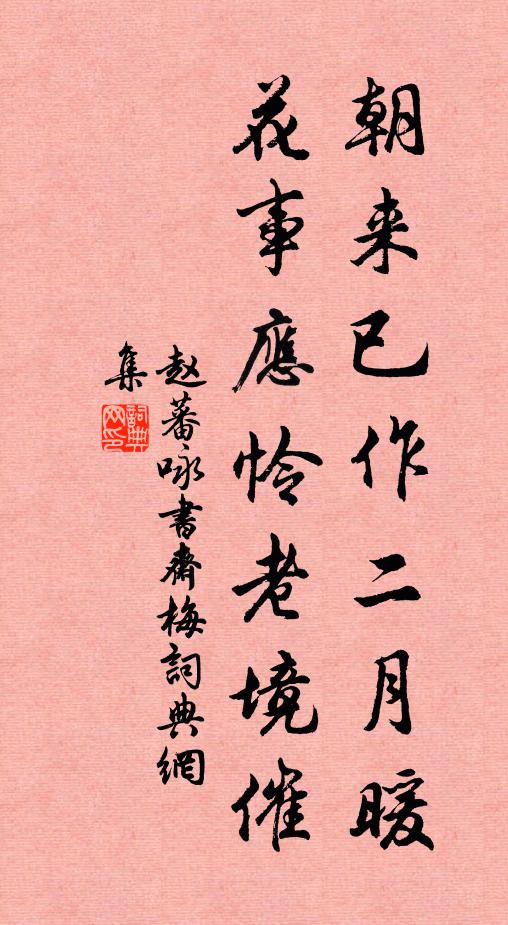 朝来已作二月暖
花事應怜老境催
赵蕃咏書齋梅詞典網
集
詞典
网印